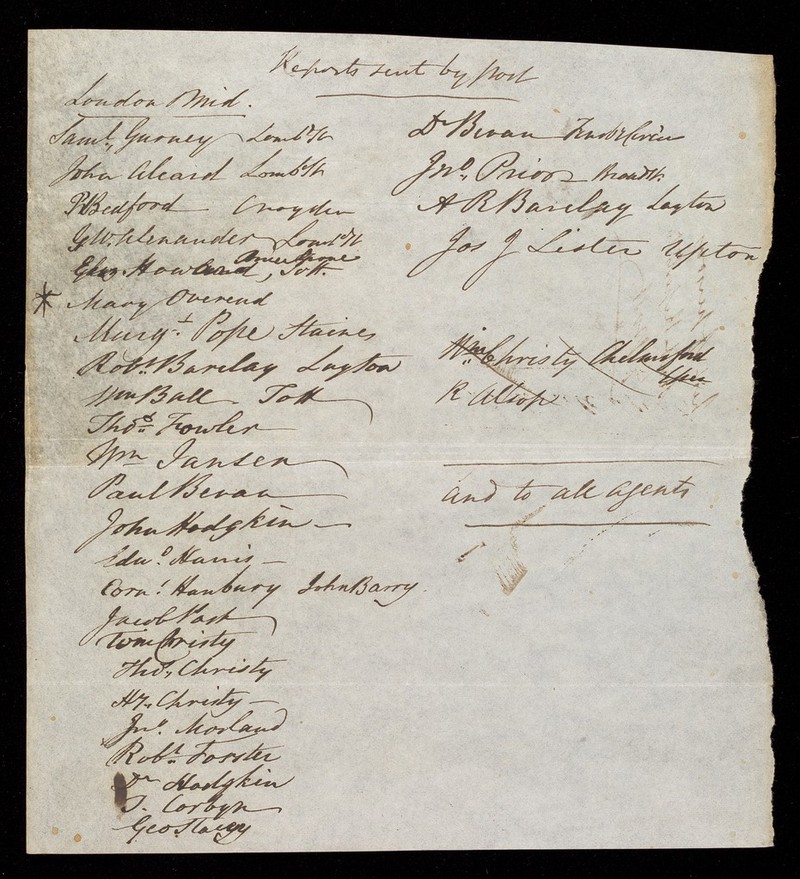 Reports sent by post
London & Mid.
Saml. Gurney Lombd St
John Aleard Lombd St
P Bedford Croyden
G W Alexander Lombd St
Eliz. Howard, Tott.
* Mary Overend
Margt. Pope Staines
Robt. Barclay Layton
Wm Ball Tott
Thos. Fowler
Wm Jansen
Paul Bevan
John Hodgkin
Edwd Harris
Cornl. Hanbury John Barry
Jacob Post
Wm Christy
Thos. Christy
Hy. Christy
Jno. Morland
Robt. Forster
Dr Hodgkin
J. Corbyn
Geo Stacey
Dr Bevan
Jno. Prior Broad St.
A R Barclay Layton
Jos J Lister Upton
Wm Christy Chelmsford
R Alsop
and to all agents